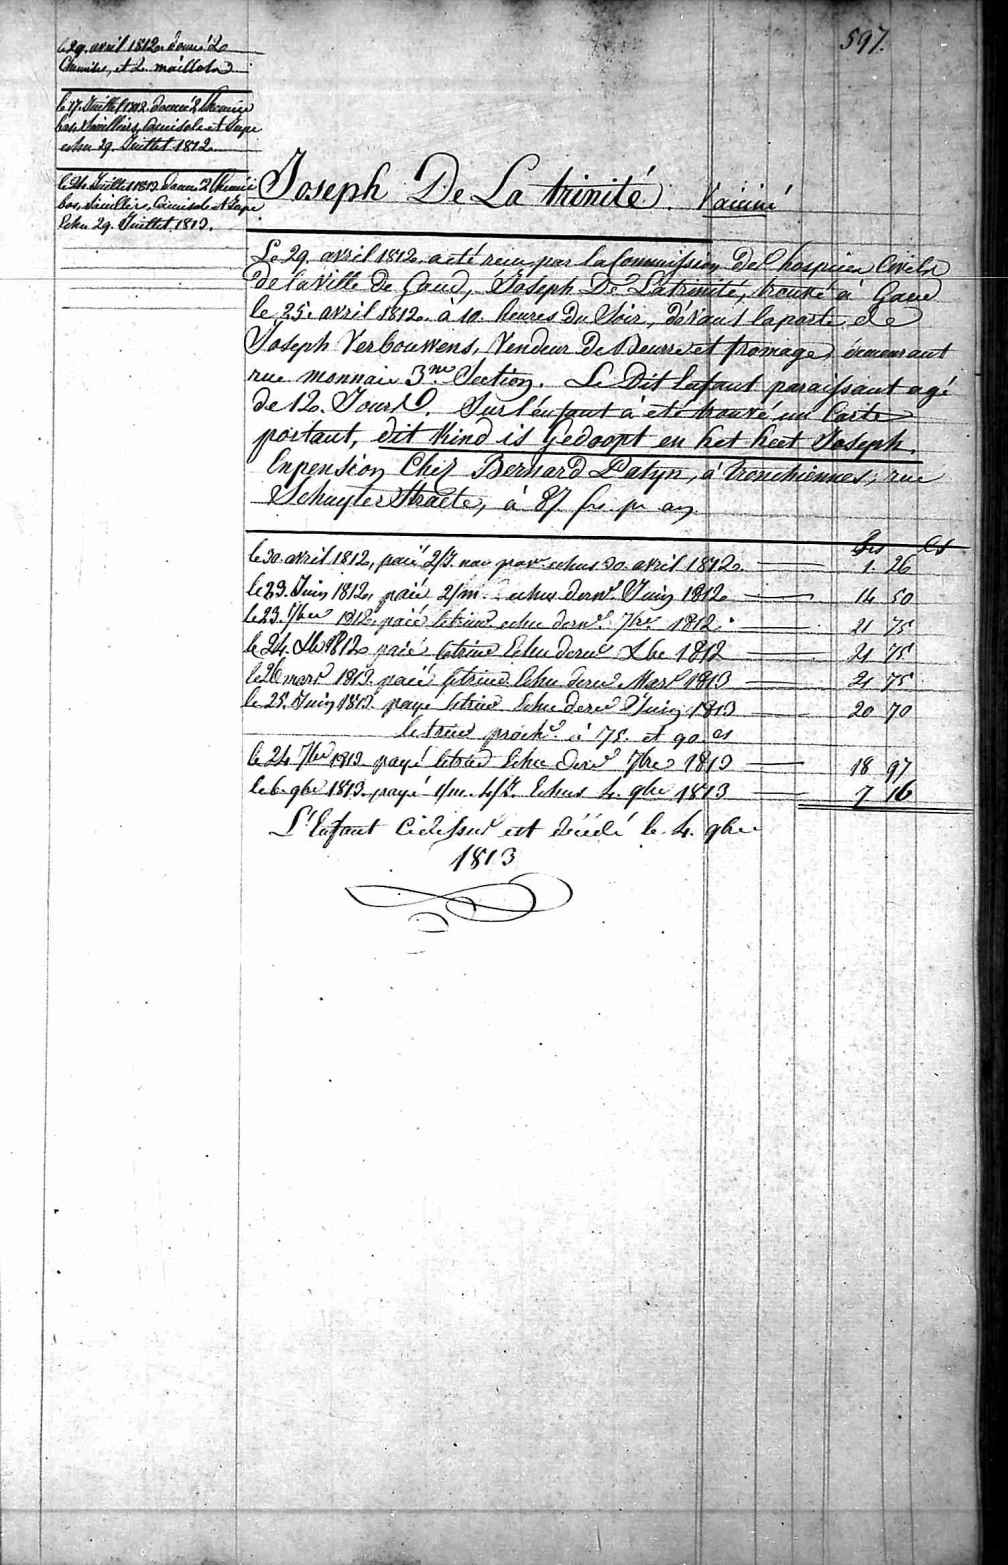 597.
le 29. avril 1812. donné 2
Chemises, et 2. maillots
le 17. Juillet 1812. donné 2 Chemise
bas, Souilliers, Camisole et Jupe
echu 29. Juillet 1812.
le 24. Juillet 1813. donné 2 Chemise
bas, Souilliers, Camisole et Jupe
Echu 29. Juillet 1813.
Joseph De La trinité. Vacciné
Le 29. avril 1812. a été recu par la Commission des hospices Civils
de la Ville de Gand, Joseph De Latrinité, trouvé à Gand
le 25. avril 1812. à 10. heures du Soir, devant la porte de
Joseph Verbouwens, Vendeur De Beurre et fromage, demeurant
rue monnaie 3.me Section. Le Dit Enfant paraissant agé
de 12. Jours. Sur l'enfant à eté trouvé un Carte
portant, dit Kind is Gedoopt en het heet Joseph.
En pension Chez Bernard Patyn, à tronchiennes, rue
Straete, à 87. frs. pr an.
frs Cs
le 30. avril 1812, paié 2/J. echus 30. avril 1812. 1. 26
le 23. Juin 1812, paié 2/m. echus dernr. Juin 1812 14 50
le 23. 7bre 1812 paié letrim. echu dernr. 7bre 1812. 21 75
le 24. Xbre 1812 paié letrim Echu dernr Xbre 1812 21 75
le 26 mars 1813. paié letrim Echu dernr Mars 1813 21 75
le 25. Juin 1813. payé letrim Echu dernr Juin 1813 20 70
letrim proch. à 75. et 90. cs
le 24 7bre 1813 payé letrim Echu dernr 7bre 1813 18 97
le 6. 9bre 1813. payé 1/m. 4/J. Echus 4. 9bre 1813 7 16
L'Enfant Cidessus est décédé le 4. 9bre
1813